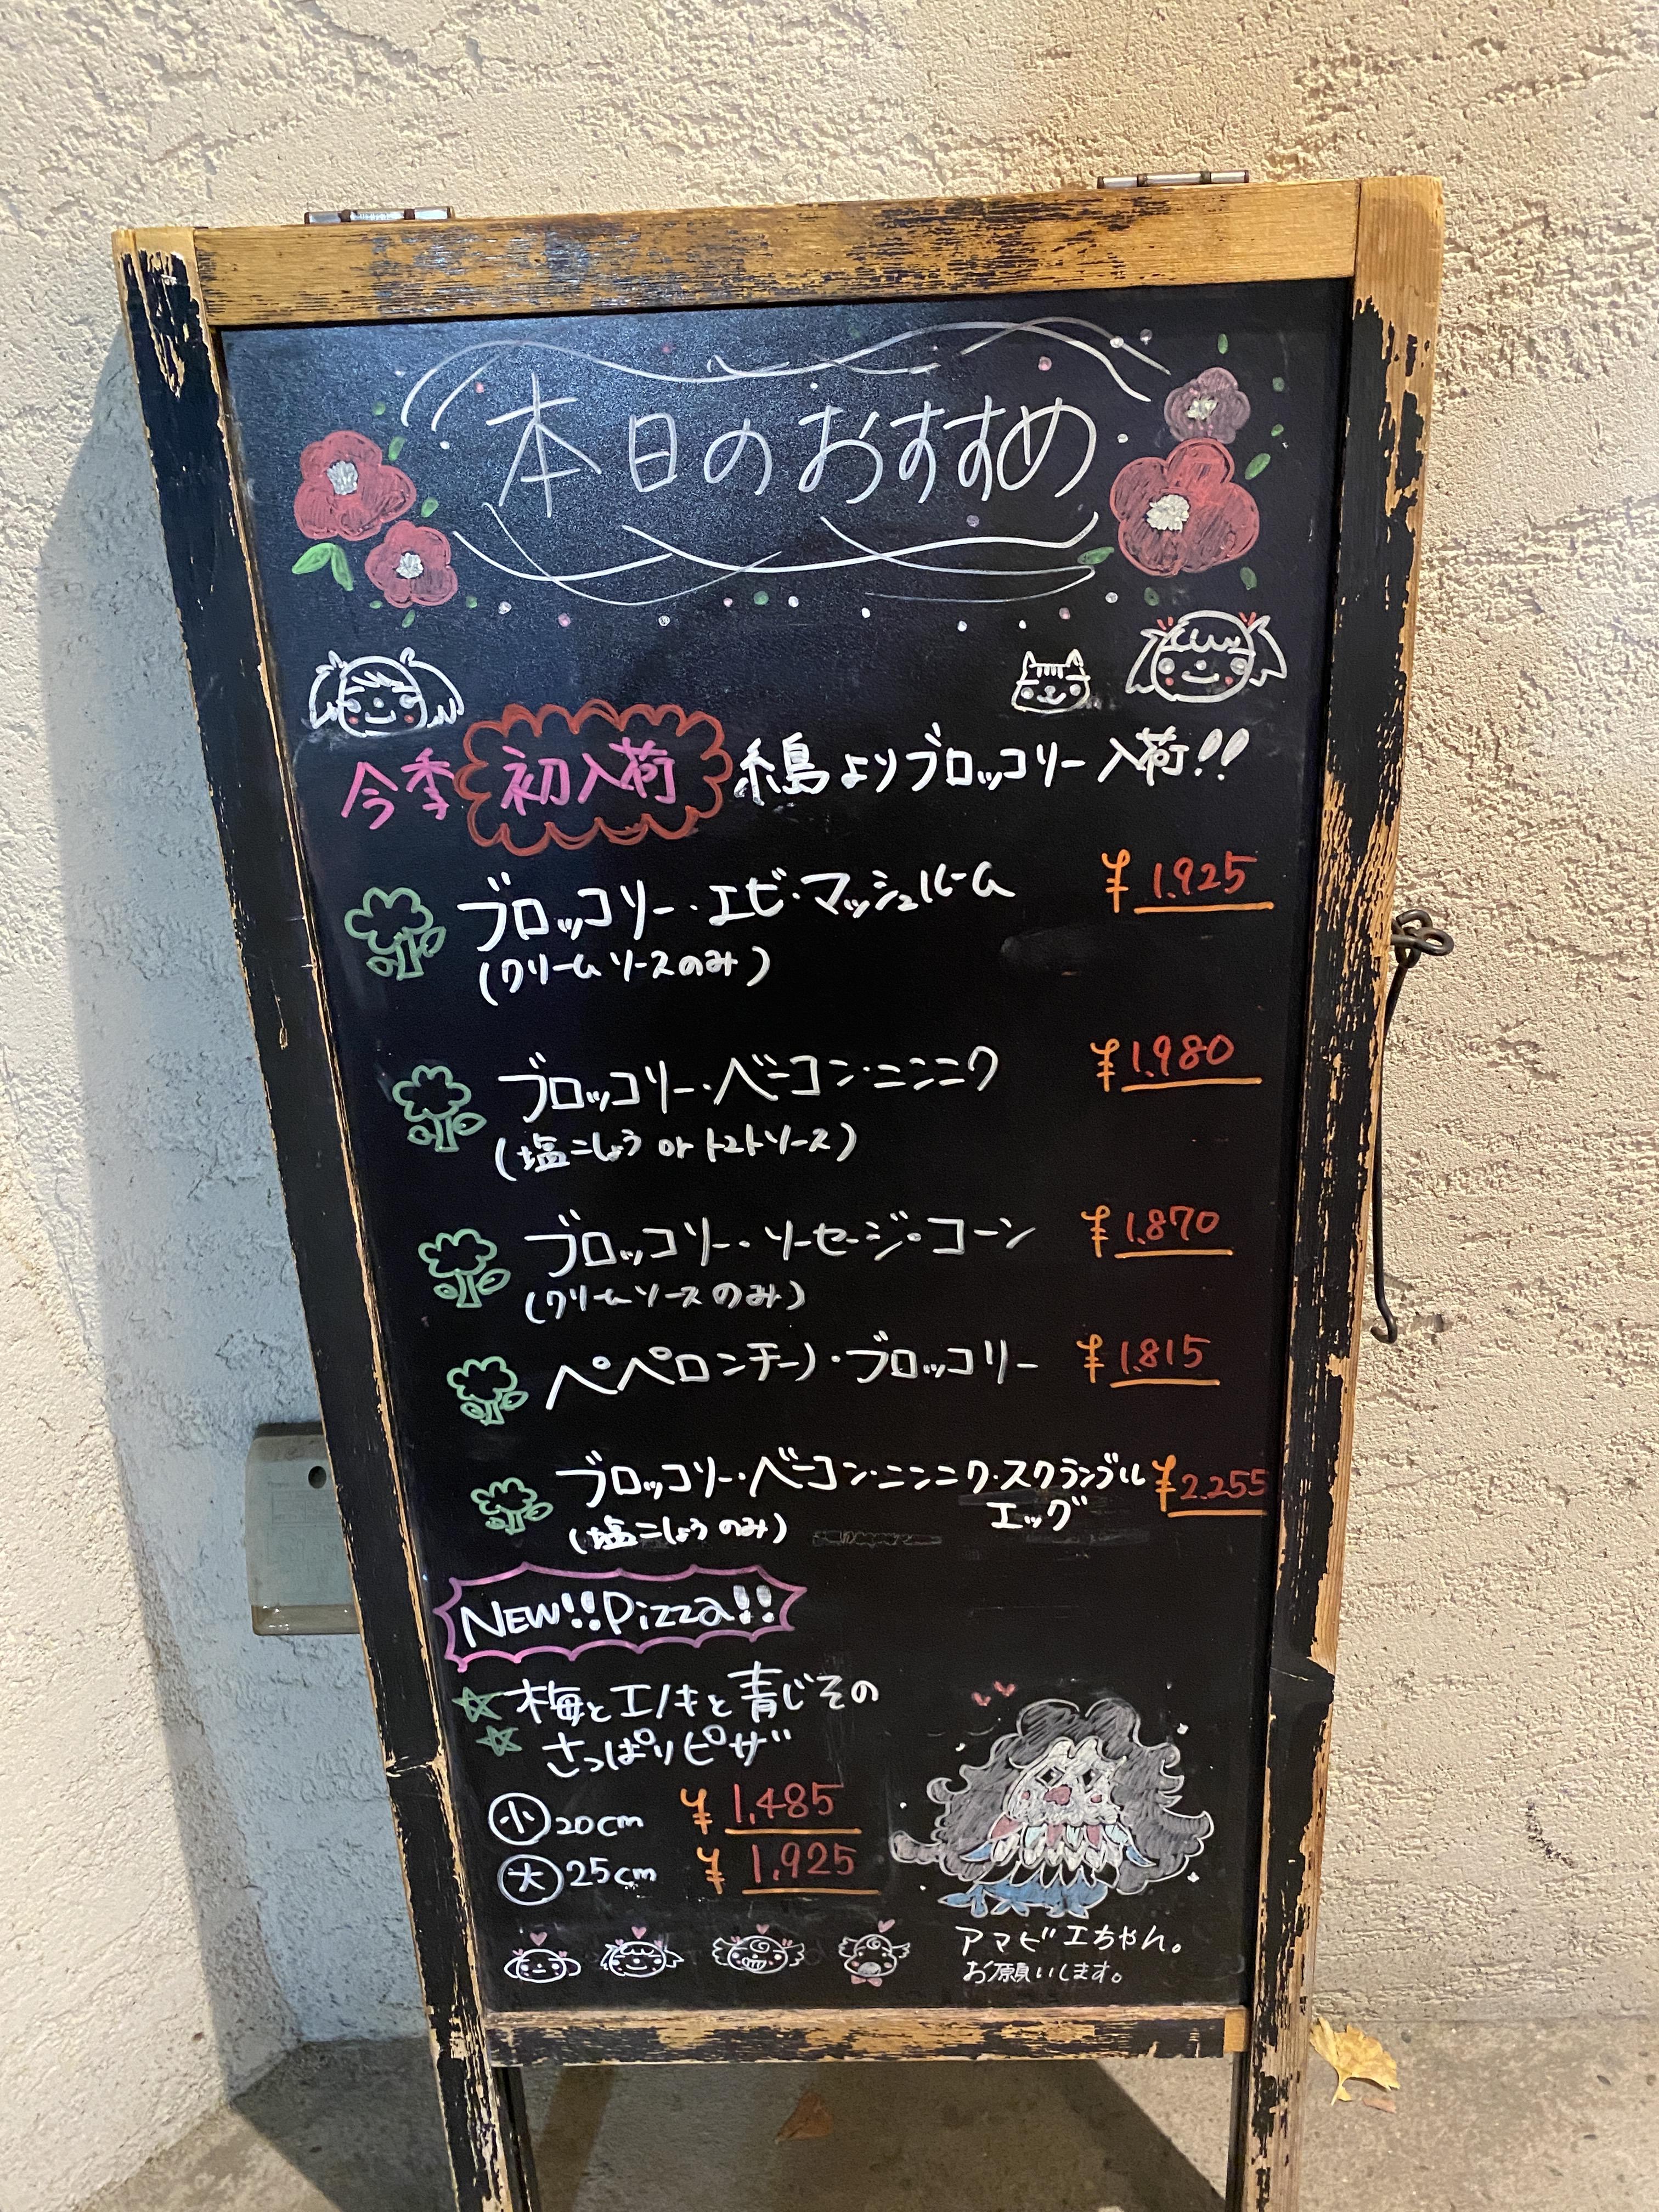 本日のおすすめ
今季 初入荷 糸島よりブロッコリー入荷!!
ブロッコリー・エビ・マッシュルーム ¥1.925
(クリームソースのみ)
ブロッコリー・ベーコン・ニンニク ¥1.980
(塩こしょう or トマトソース)
ブロッコリー・ソーセージ・コーン ¥1.870
(クリームソースのみ)
ペペロンチーノ・ブロッコリー ¥1.815
ブロッコリー・ベーコン・ニンニク・スクランブル ¥2.255
エッグ
(塩こしょうのみ)
NEW!!Pizza!!
梅とエノキと青じその
さっぱりピザ
小 20cm ¥1,485
大 25cm ¥1,925
アマビエちゃん。
お願いします。